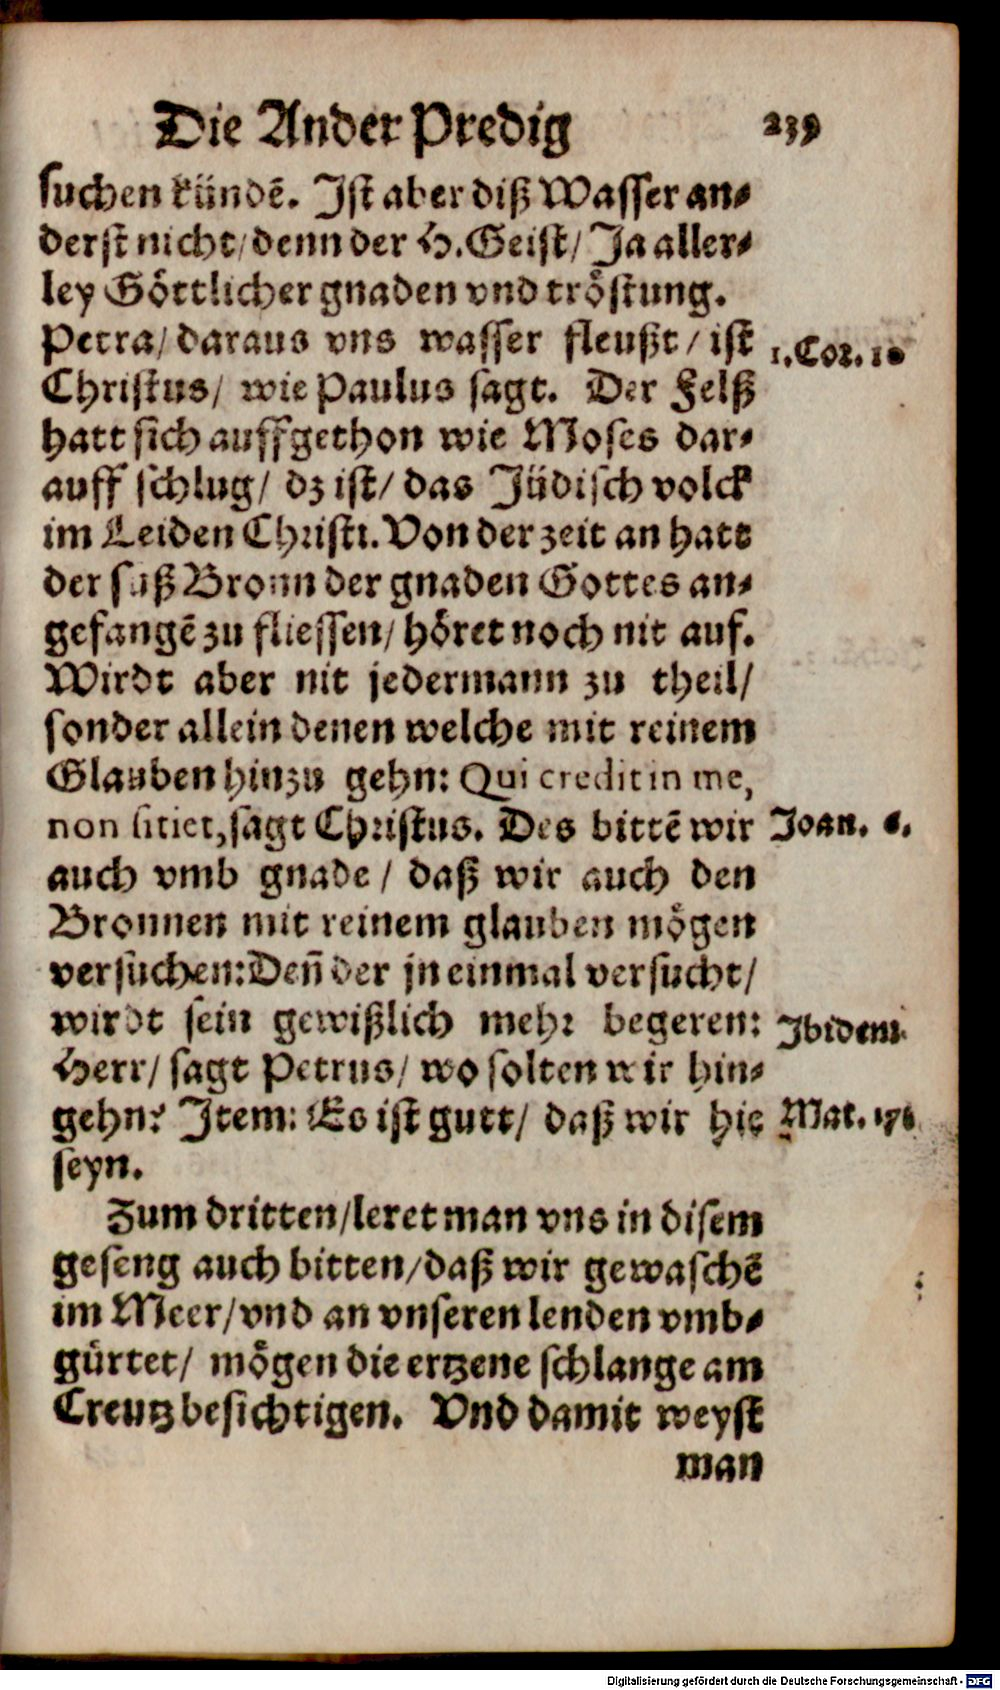 Die Ander Predig 239
suchen kündē. Ist aber diß Wasser an⸗
derst nicht/ denn der H. Geist/ Ja aller⸗
ley Göttlicher gnaden vnd tröstung.
Petra/ daraus vns wasser fleußt / ist
1. Cor. 10
Christus/ wie Paulus sagt. Der Felß
hatt sich auffgethon wie Moses dar⸗
auff schlug/ dz ist/ das Jüdisch volck
im Leiden Christi. Von der zeit an hatt
der süß Bronn der gnaden Gottes an⸗
gefangē zu fliessen/ höret noch nit auf.
Wirdt aber nit jedermann zu theil/
sonder allein denen welche mit reinem
Glauben hinzu gehn: Qui credit in me,
non sitiet, sagt Christus. Des bittē wir
Joan. 6.
auch vmb gnade / daß wir auch den
Bronnen mit reinem glauben mögen
versuchen: Deñ der jn einmal versucht/
wirdt sein gewißlich mehr begeren:
Ibidem.
Herr/ sagt Petrus/ wo solten wir hin⸗
gehn? Item: Es ist gutt/ daß wir hie
Mat. 17.
seyn.
Zum dritten/ leret man vns in disem
geseng auch bitten/ daß wir gewaschē
im Meer/ vnd an vnseren lenden vmb⸗
gürtet/ mögen die ertzene schlange am
Creutz besichtigen. Vnd damit weyst
man
Digitalisierung gefördert durch die Deutsche Forschungsgemeinschaft - DFG